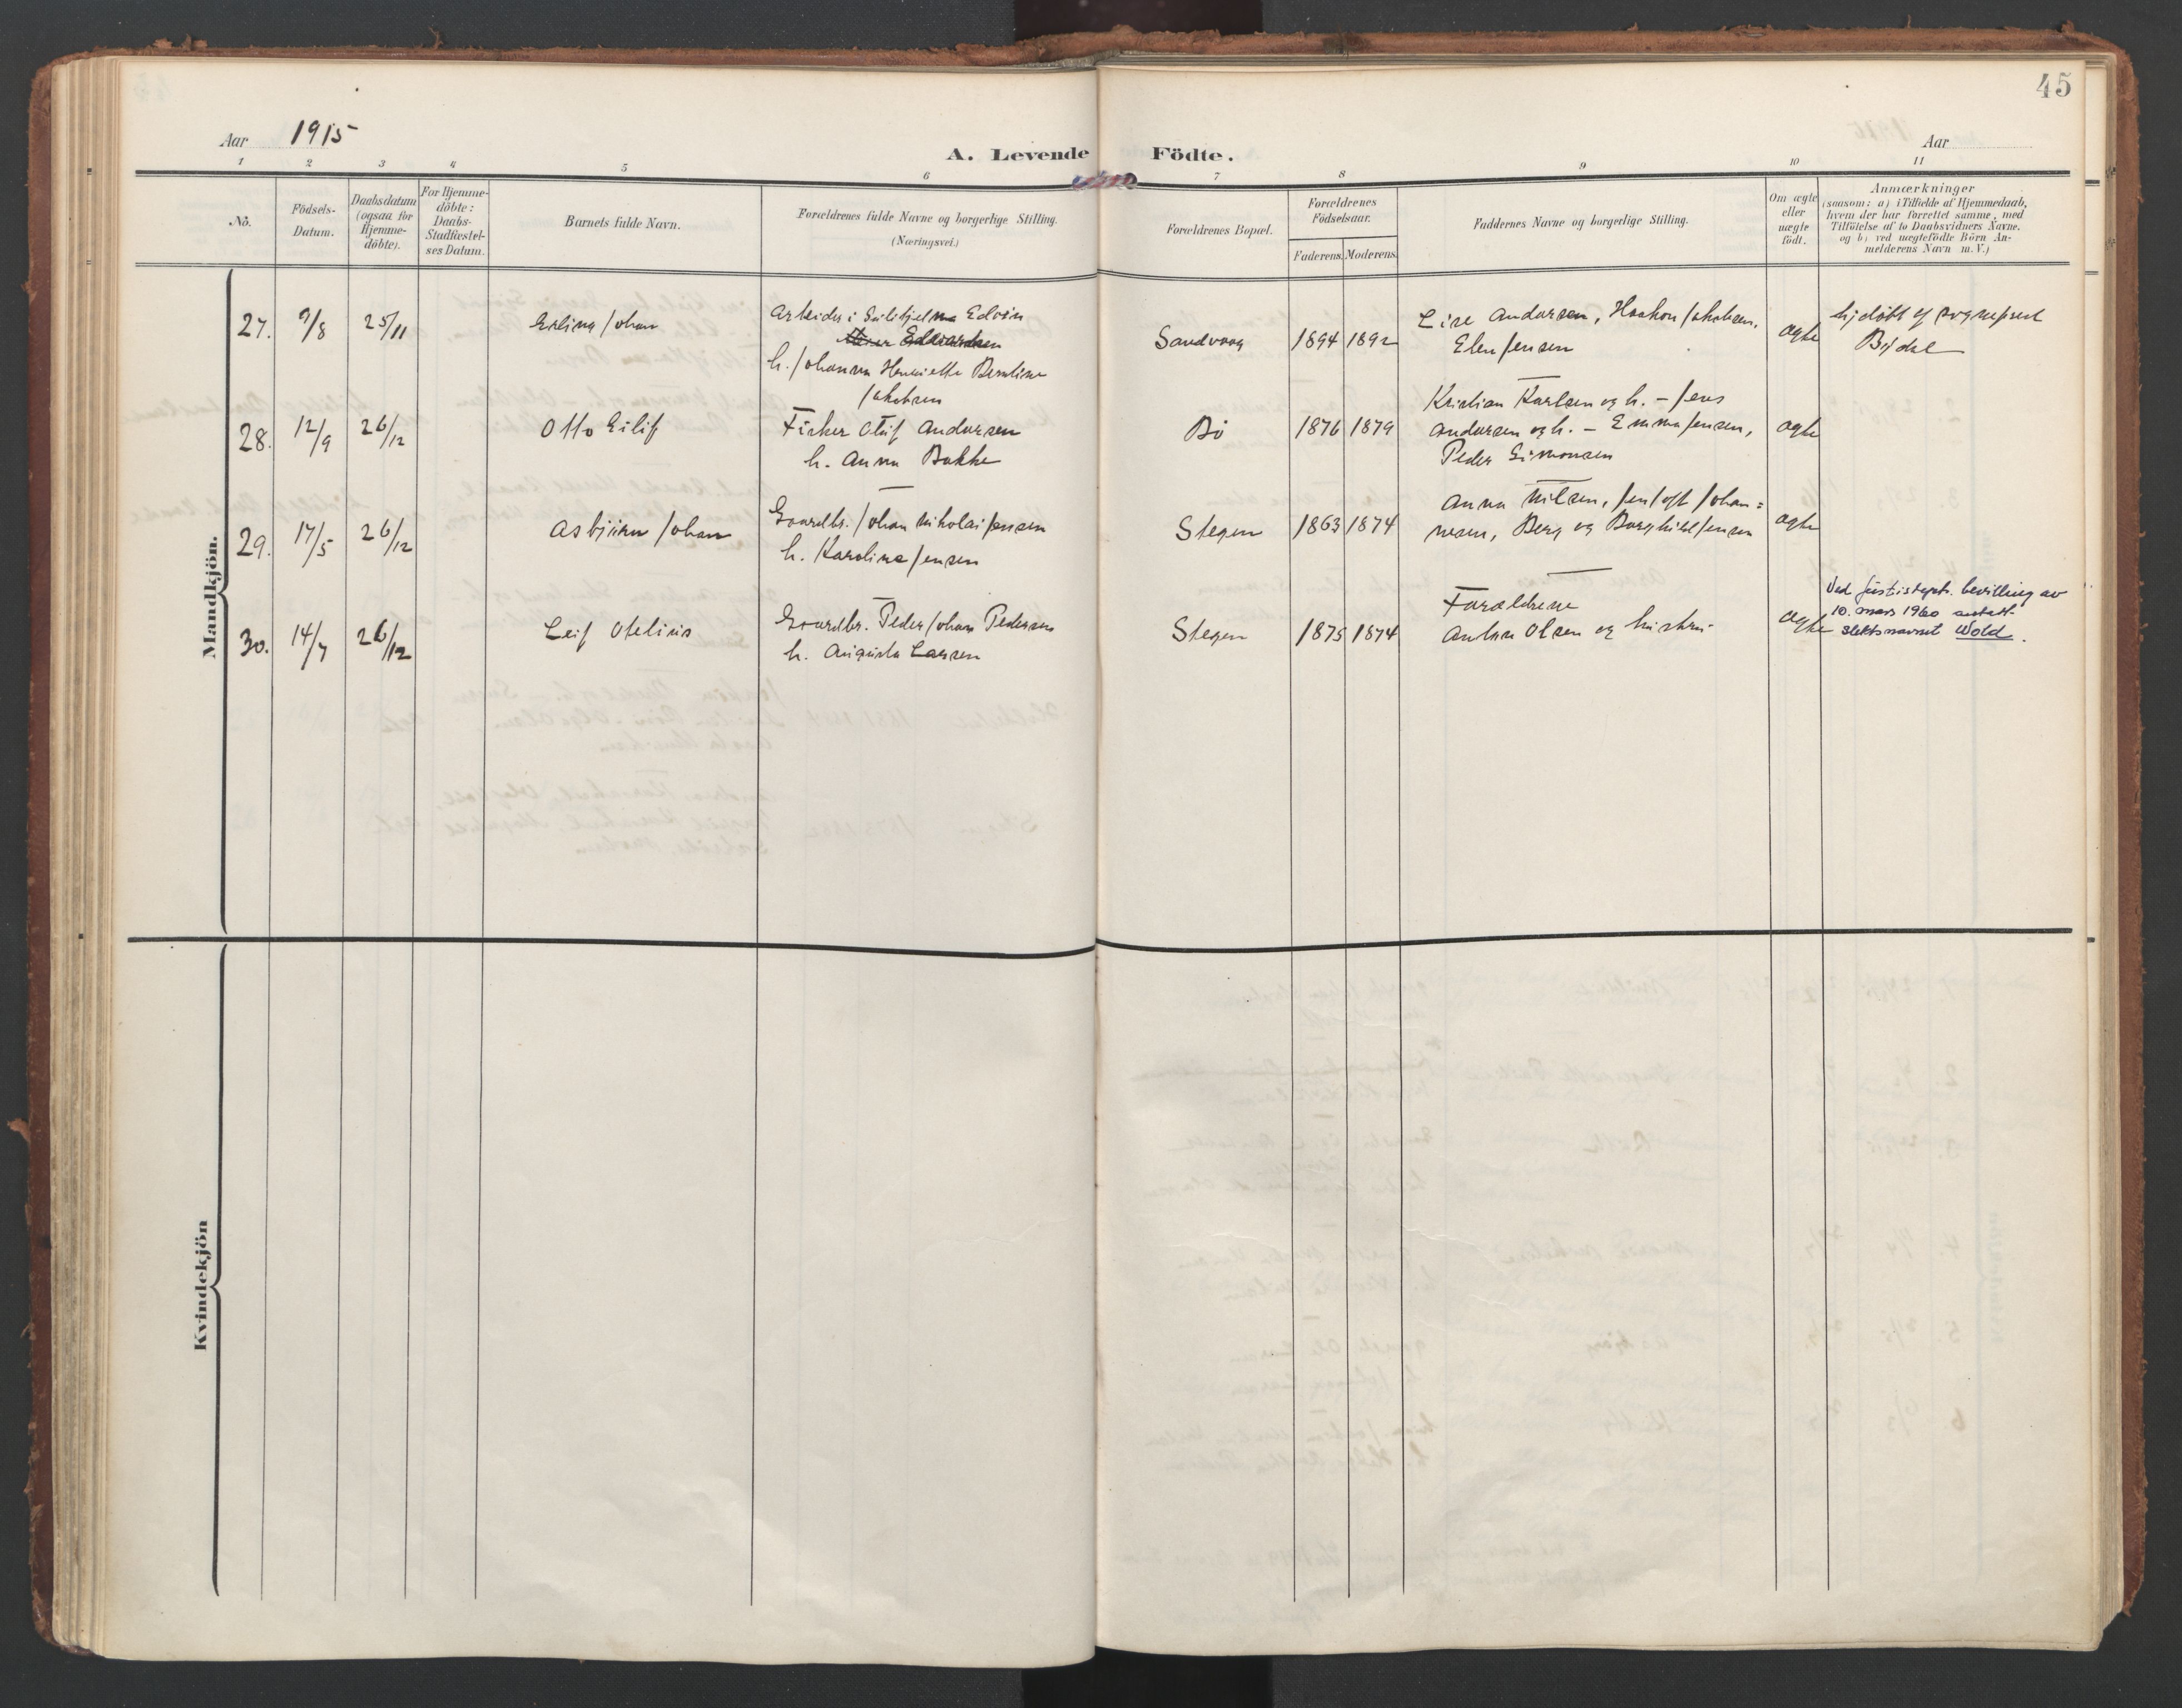 45
Aar 1915
A. Levende Födte.
Aar
1 2 3 4 5 6 7 8 9 10 11
No.
Födsels-
Datum.
Daabsdatum
(ogsaa for
Hjemme-
döbte).
For Hjemme-
döbte:
Daabs-
Stadfæstel-
ses Datum.
Barnets fulde Navn.
Forældrenes fulde Navne og borgerlige Stilling.
(Næringsvei.)
Forældrenes Bopæl.
Forældrenes
Födselsaar.
Faderens. Moderens.
Faddernes Navne og borgerlige Stilling.
Om ægte
eller
uægte
födt.
Anmærkninger
(saasom: a) i Tilfælde af Hjemmedaab,
hvem der har forrettet samme, med
Tilföielse af to Daabsvidners Navne.
og b) ved uægtefödte Börn An-
melderens Navn m. V.)
Mandkjön.
27. 9/8 25/11 Erling Johan
Arbeider i Edvin
h. Johanna Henriette Bernline
Jakobsen
Sandvaag 1894 1892
Lise Andersen, Haakon Jakobsen,
Elen Jensen
ægte
hjdöbt af sogneprest
Bydal
28. 12/9 26/12 Otto Eilif
Fisker Oluf Andersen
h. Anna Bakke
Bö 1876 1879
Kristian Karlsen og h. - Jens
Andersen og h. - Emma Jensen,
Peder Simonsen
ægte
29. 17/5 26/12 Asbjörn Johan
Gaardbr. Johan Nikolai Jensen
h. Karoline Jensen
Stegen 1863 1874
Anna Nilsen, Jentoft Johan=
nesen, Berg og Borghild Jensen
ægte
30. 14/7 26/12 Leif Otelius
Gaardbr. Peder Johan Pedersen
h. Augusta Larsen
Stegen 1875 1874
Forældrene
Anton Olsen og hustru
ægte
Ved Justisdepts. bevilling av
10. mars 1960 antatt
slektsnavnet Wold.
Kvindekjön